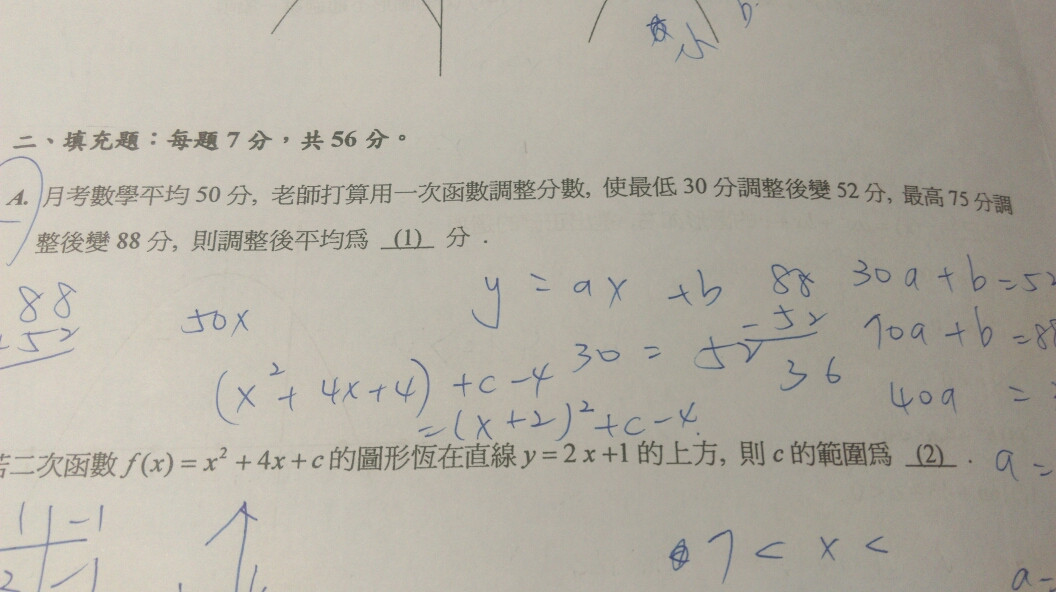 二、填充題：每題 7 分，共 56 分。
A. 月考數學平均 50 分, 老師打算用一次函數調整分數, 使最低 30 分調整後變 52 分, 最高 75 分調
整後變 88 分, 則調整後平均爲 (1) 分 .
88
-52
50x
y = ax + b
88
-52
36
30a + b = 52
70a + b = 88
40a =
30 = 52
(x²+ 4x+4) + c -4
=(x+2)²+c-4
若二次函數 f(x) = x² + 4x + c 的圖形恆在直線 y = 2x +1 的上方, 則 c 的範圍爲 (2) .
a =
7 < x <
a =